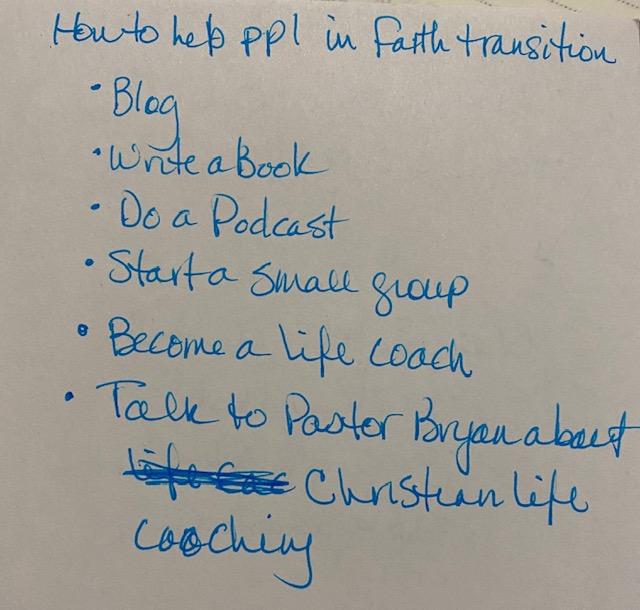 How to help ppl in faith transition
• Blog
• Write a Book
• Do a Podcast
• Start a small group
• Become a life coach
• Talk to Pastor Bryan about
Christian life
coaching